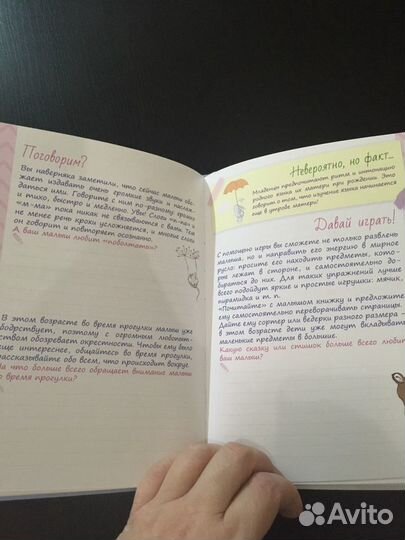 Поговорим?
Вы наверняка заметили, что сейчас малыш обо-
жает издавать очень громкие звуки и наслаж-
даться ими. Говорите с ним по-разному: громко
и тихо, быстро и медленно. Увы! Слоги «па-па» и
«м-ма» пока никак не связываются с вами. Тем
не менее речь крохи усложняется, и многие слоги
он говорит и повторяет осознанно.
А ваш малыш любит «поболтать»?
В этом возрасте во время прогулки малыш уже
бодрствует, поэтому с огромным любопыт-
ством обозревает окрестности. Чтобы ему было
еще интереснее, общайтесь во время прогулки,
рассказывайте обо всем, что происходит вокруг.
На что больше всего обращает внимание малыш
во время прогулки?
Невероятно, но факт...
Младенцы предпочитают ритм и интонацию
родного языка их матери при рождении. Это
говорит о том, что изучение языка начинается
еще в утробе матери!
Давай играть!
С помощью игры вы сможете не только развлечь
малыша, но и направить его энергию в мирное
русло: просите его находить предметы, кото-
рые лежат в стороне, и самостоятельно до-
бираться до них. Для таких упражнений лучше
всего подойдут яркие и простые игрушки: мячик,
пирамидка и т. п.
«Почитайте» с малышом книжку и предложите
ему самостоятельно переворачивать страницы.
Дайте ему сортер или ведерки разного размера –
в этом возрасте дети уже могут вкладывать
маленькие предметы в большие.
Какую сказку или стишок больше всего любит
ваш малыш?
Avito